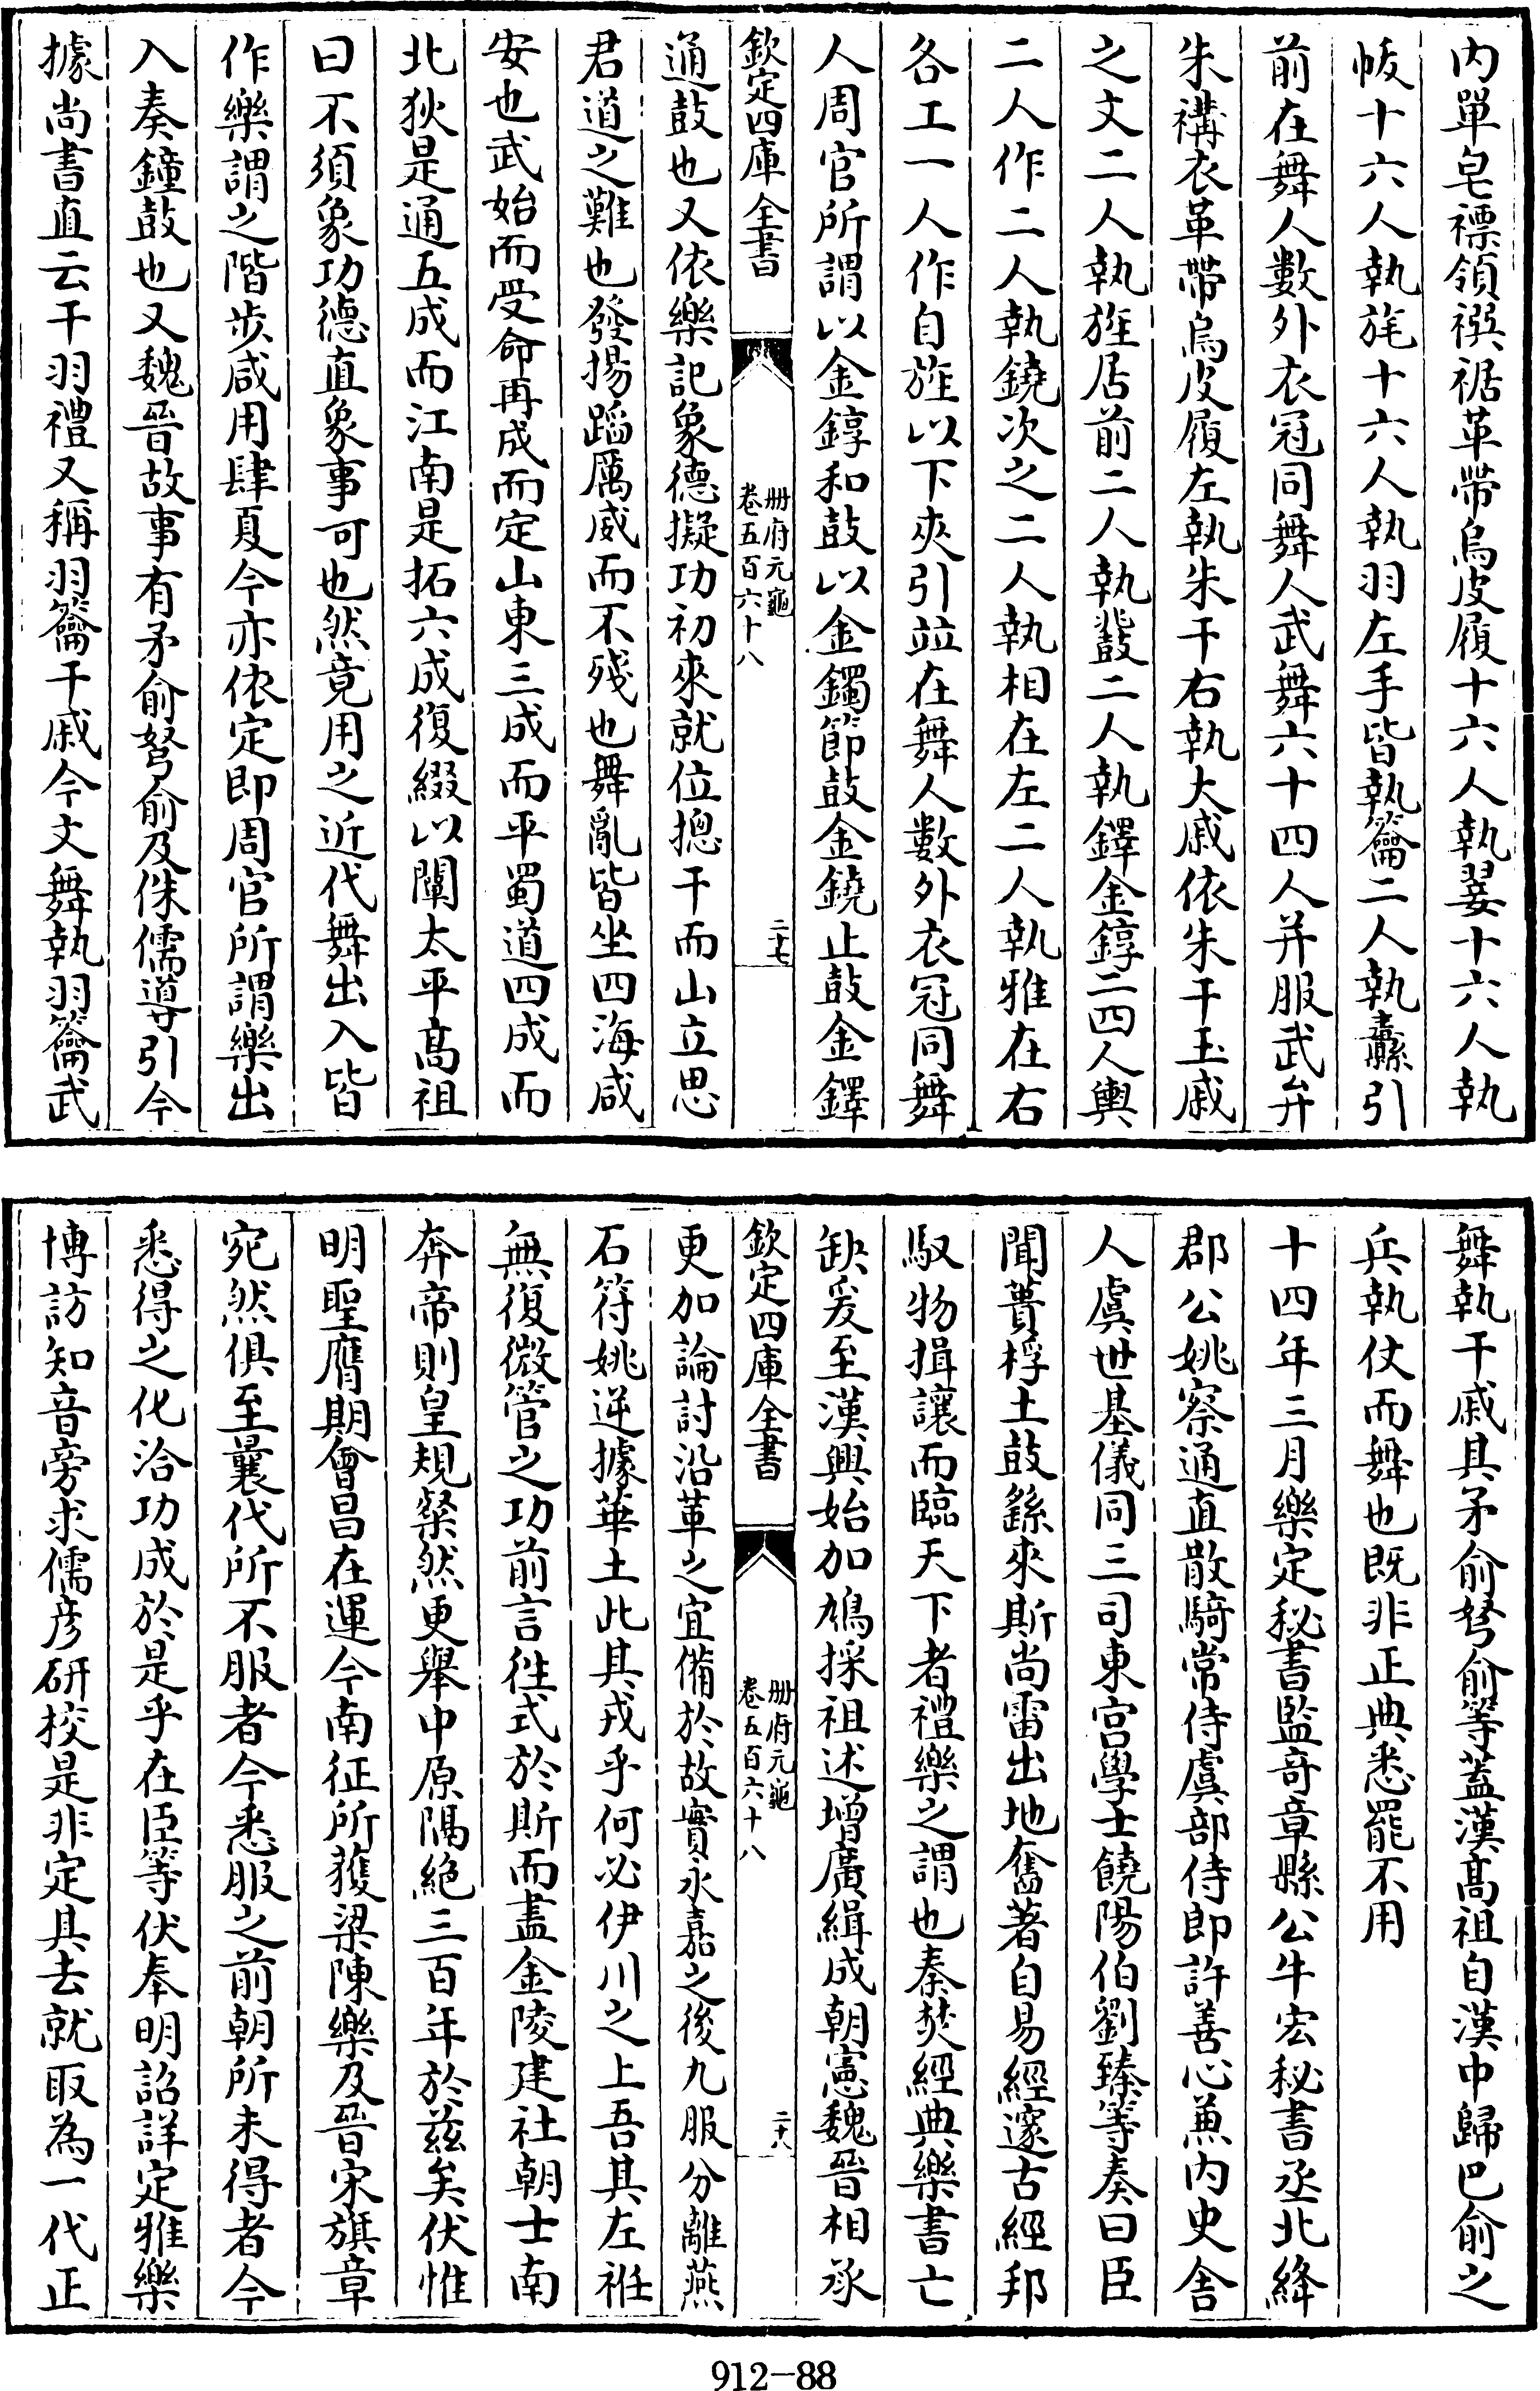 內單皂褾領襈裾革帶烏皮履十六人執翣十六人執
帗十六人執旄十六人執羽左手皆執籥二人執纛引
前在舞人數外衣冠同舞人武舞六十四人并服武弁
朱褠衣革帶烏皮履左執朱干右執大戚依朱干玉戚
之文二人執旌居前二人執鼗二人執鐸金錞二四人輿
二人作二人執鐃次之二人執相在左二人執雅在右
各工一人作自旌以下夾引竝在舞人數外衣冠同舞
人周官所謂以金錞和鼓以金鐲節鼓金鐃止鼓金鐸
欽定四庫全書
冊府元龜
卷五百六十八
二十七
通鼓也又依樂記象德擬功初來就位揔干而山立思
君道之難也發揚蹈厲威而不殘也舞亂皆坐四海咸
安也武始而受命再成而定山東三成而平蜀道四成而
北狄是通五成而江南是拓六成復綴以闡太平髙祖
曰不須象功德直象事可也然竟用之近代舞出入皆
作樂謂之階步咸用肆夏今亦依定即周官所謂樂出
入奏鐘鼓也又魏晉故事有矛俞弩俞及侏儒導引今
據尚書直云干羽禮又稱羽籥干戚今文舞執羽籥武
舞執干戚其矛俞弩俞等蓋漢髙祖自漢中歸巴俞之
兵執仗而舞也既非正典悉罷不用
十四年三月樂定秘書監竒章縣公牛宏秘書丞北絳
郡公姚察通直散騎常侍虞部侍郎許善心兼內史舍
人虞世基儀同三司東宫學士饒陽伯劉臻等奏曰臣
聞蕢桴土鼓繇來斯尚雷出地奮著自易經邃古經邦
馭物揖讓而臨天下者禮樂之謂也秦焚經典樂書亡
缺爰至漢興始加鳩採祖述增廣緝成朝憲魏晉相承
欽定四庫全書
冊府元龜
卷五百六十八
二十八
更加論討沿革之宜備於故實永嘉之後九服分離燕
石符姚逆據華土此其戎乎何必伊川之上吾其左衽
無復微管之功前言徃式於斯而盡金陵建社朝士南
奔帝則皇規粲然更舉中原隔絶三百年於兹矣伏惟
明聖膺期會昌在運今南征所獲梁陳樂及晉宋旗章
宛然俱至曩代所不服者今悉服之前朝所未得者今
悉得之化洽功成於是乎在臣等伏奉明詔詳定雅樂
博訪知音旁求儒彦研校是非定其去就取為一代正
912-88